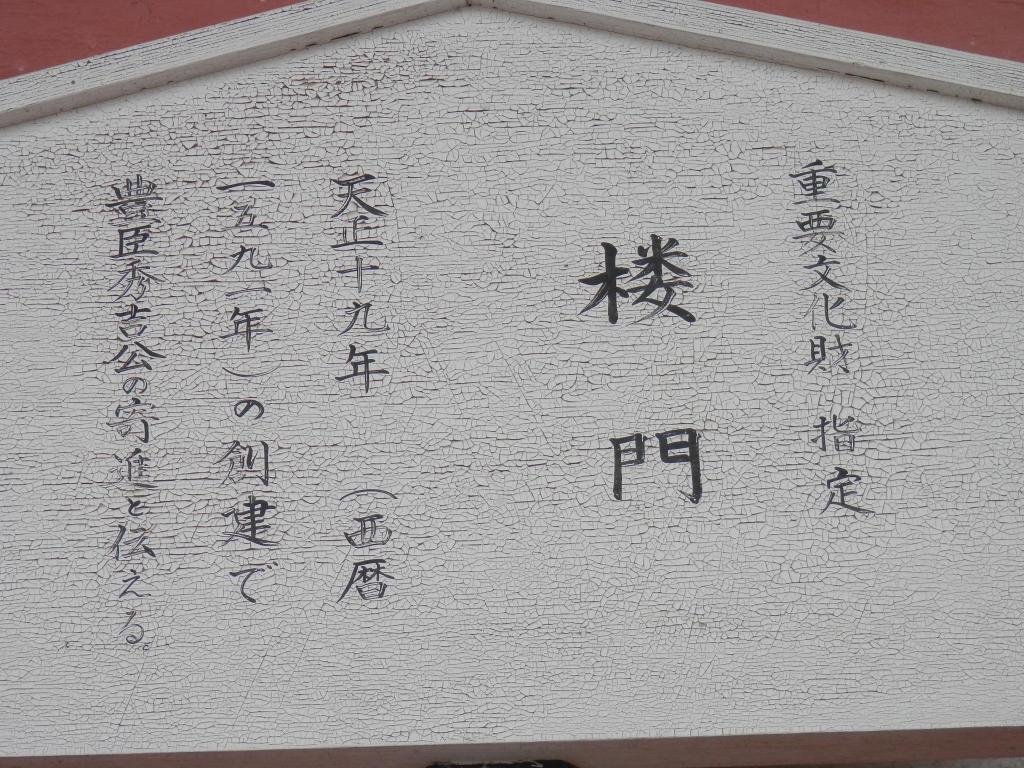 重要文化財 指定
楼門
天正十九年 (西暦
一五九一年)の創建で
豊臣秀吉公の寄進と伝える。